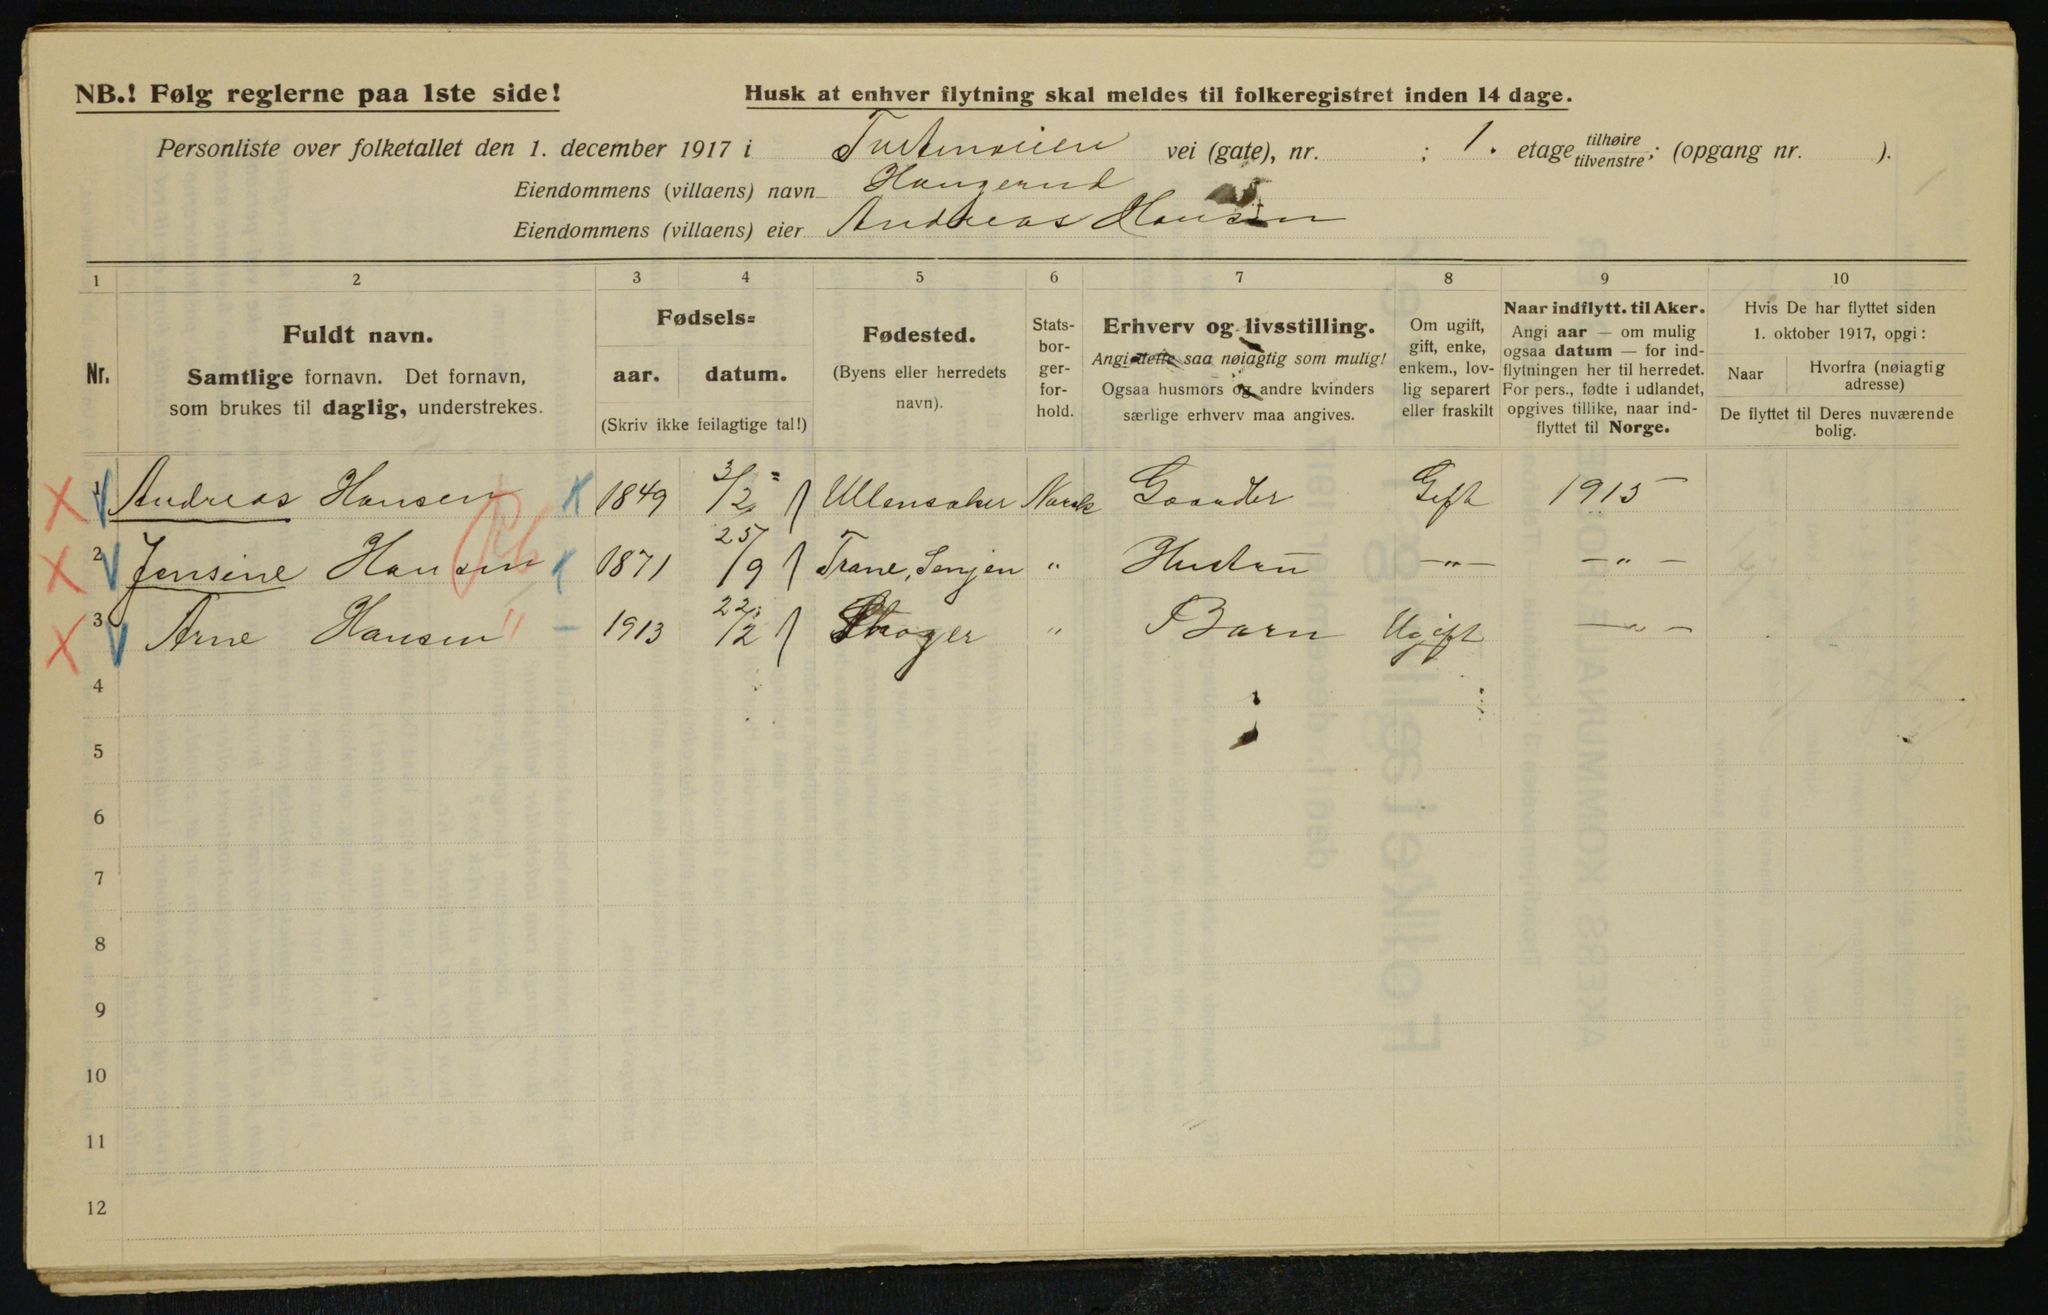 NB.! Følg reglerne paa 1ste side!
Husk at enhver flytning skal meldes til folkeregistret inden 14 dage.
Personliste over folketallet den 1. december 1917 i vei (gate), nr. ; 1. etage tilhøire tilvenstre; (opgang nr. ).
Eiendommens (villaens) navn Haugerud
Eiendommens (villaens) eier Andreas Hansen
1 2 3 4 5 6 7 8 9 10
Nr.
Fuldt navn.
Samtlige fornavn. Det fornavn,
som brukes til daglig, understrekes.
Fødsels=
aar. datum.
(Skriv ikke feilagtige tal!)
Fødested.
(Byens eller herredets
navn).
Stats-
bor-
ger-
for-
hold.
Erhverv og livsstilling.
Angi dette saa nøiagtig som mulig!
Ogsaa husmors og andre kvinders
særlige erhverv maa angives.
Om ugift,
gift, enke,
enkem., lov-
lig separert
eller fraskilt
Naar indflytt. til Aker.
Angi aar — om mulig
ogsaa datum — for ind-
flytningen her til herredet.
For pers., fødte i udlandet,
opgives tillike, naar ind-
flyttet til Norge.
Hvis De har flyttet siden
1. oktober 1917, opgi:
Naar Hvorfra (nøiagtig
adresse)
De flyttet til Deres nuværende
bolig.
1 Andreas Hansen 1849 3/2 Ullensaker Norsk Gift 1915
2 Jensine Hansen 1871 25/9 Trane, Senjen " Hustru —"— —"—
3 Arne Hansen 1913 22/2 " Barn Ugift —"—
4
5
6
7
8
9
10
11
12